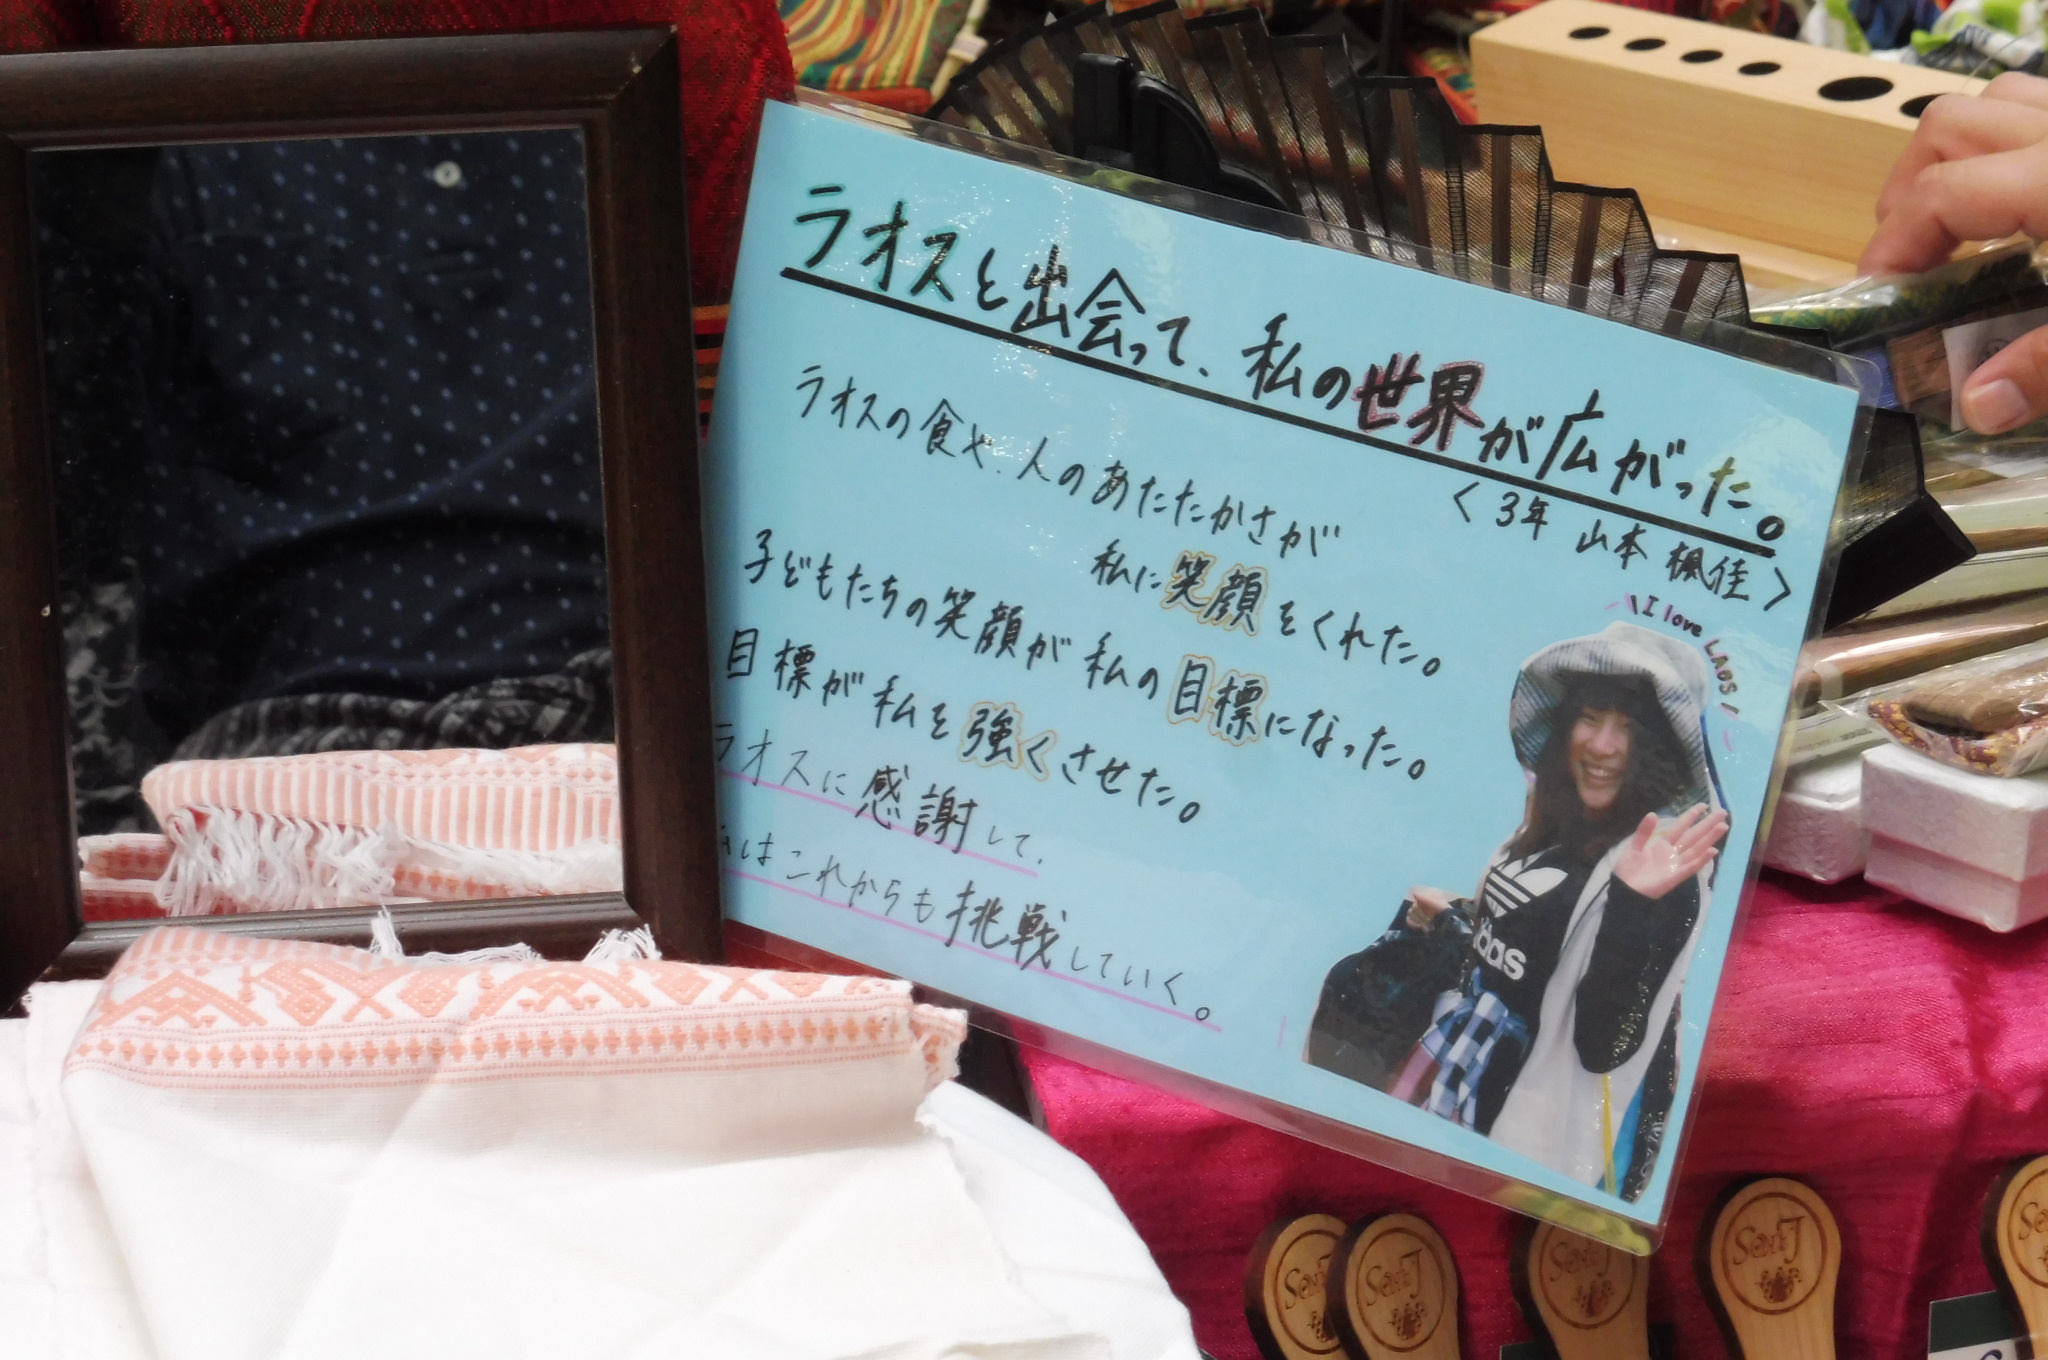 ラオスと出会って、私の世界が広がった。
<3年 山本 楓佳>
ラオスの食や、人のあたたかさが
私に笑顔をくれた。
子どもたちの笑顔が私の目標になった。
目標が私を強くさせた。
ラオスに感謝して、
私はこれからも挑戦していく。
\I love LAOS/
das